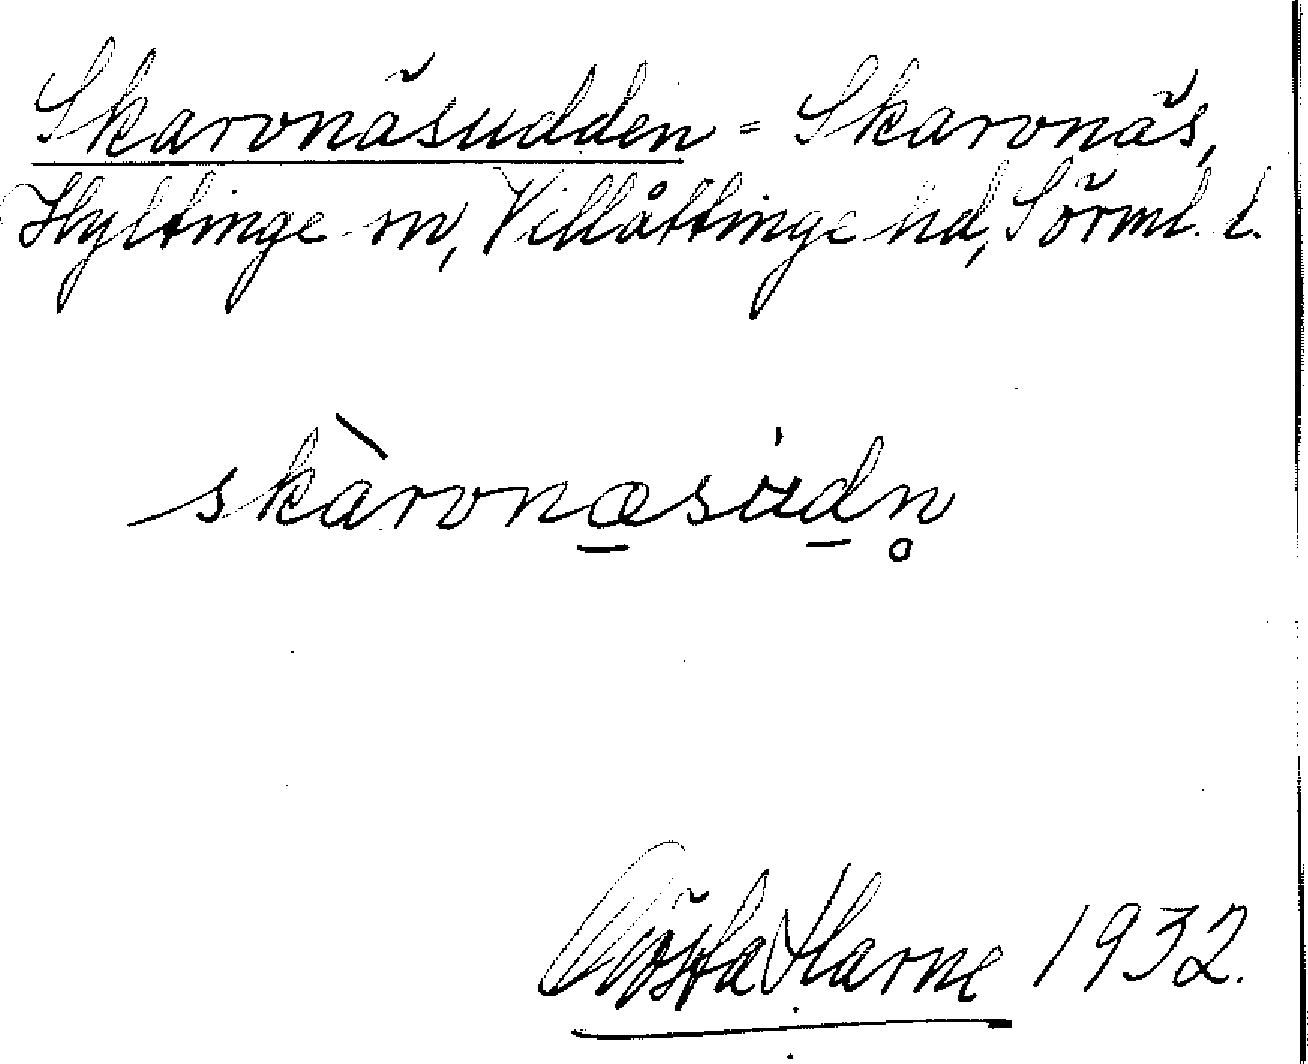 Skarvnäsudden = Skarvnäs,
Hyltinge sn, Villåttinge hd, Sörml. l.
skàrvnæ̱sú̶ḏn̥
Gösta Harne 1932.